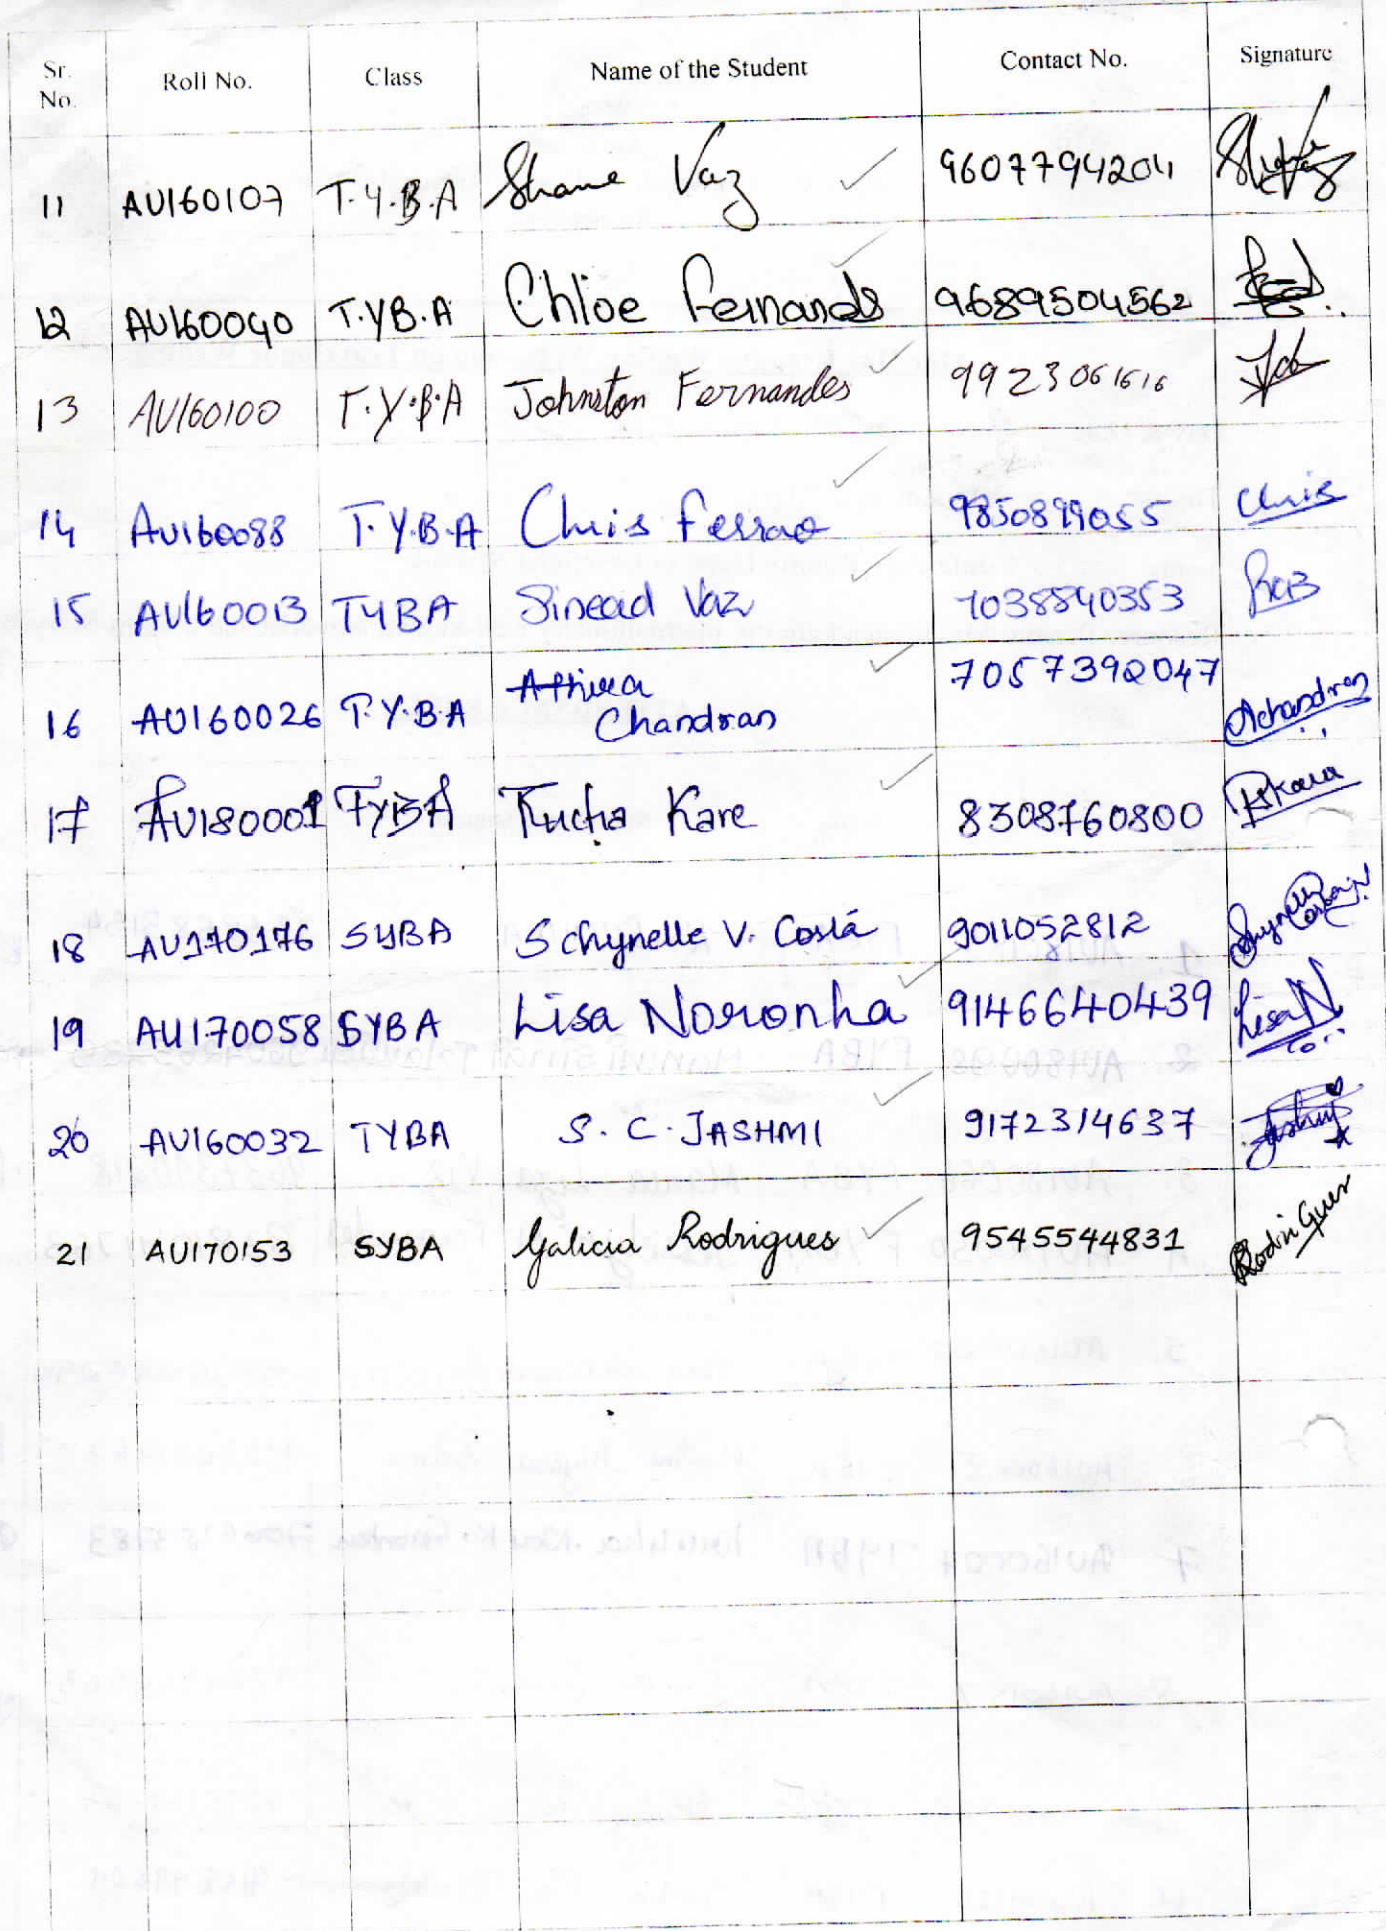 Sr. No. Roll No. Class Name of the Student Contact No. Signature
11 AU160107 T.Y.B.A Shane Vaz 9607794204
12 AU160040 T.YB.A Chloe Fernands 9689504562
13 AU160100 T.Y.B.A Johnston Fernandes 9923061616
14 AU160088 T.Y.B.A Chris Ferrao 9850899055 Chris
15 AU160013 TYBA Sinead Vaz 7038840353
16 AU160026 T.Y.B.A Athira Chandran 7057392047 AChandran
17 AU180001 FYBA Kare 8308760800
18 AU170176 SYBA Schynelle V. Costa 9011052812
19 AU170058 SYBA Lisa Noronha 9146640439 Lisa N
20 AU160032 TYBA S. C. JASHMI 9172314637 Jashmi
21 AU170153 SYBA Galicia Rodrigues 9545544831 Rodrigues